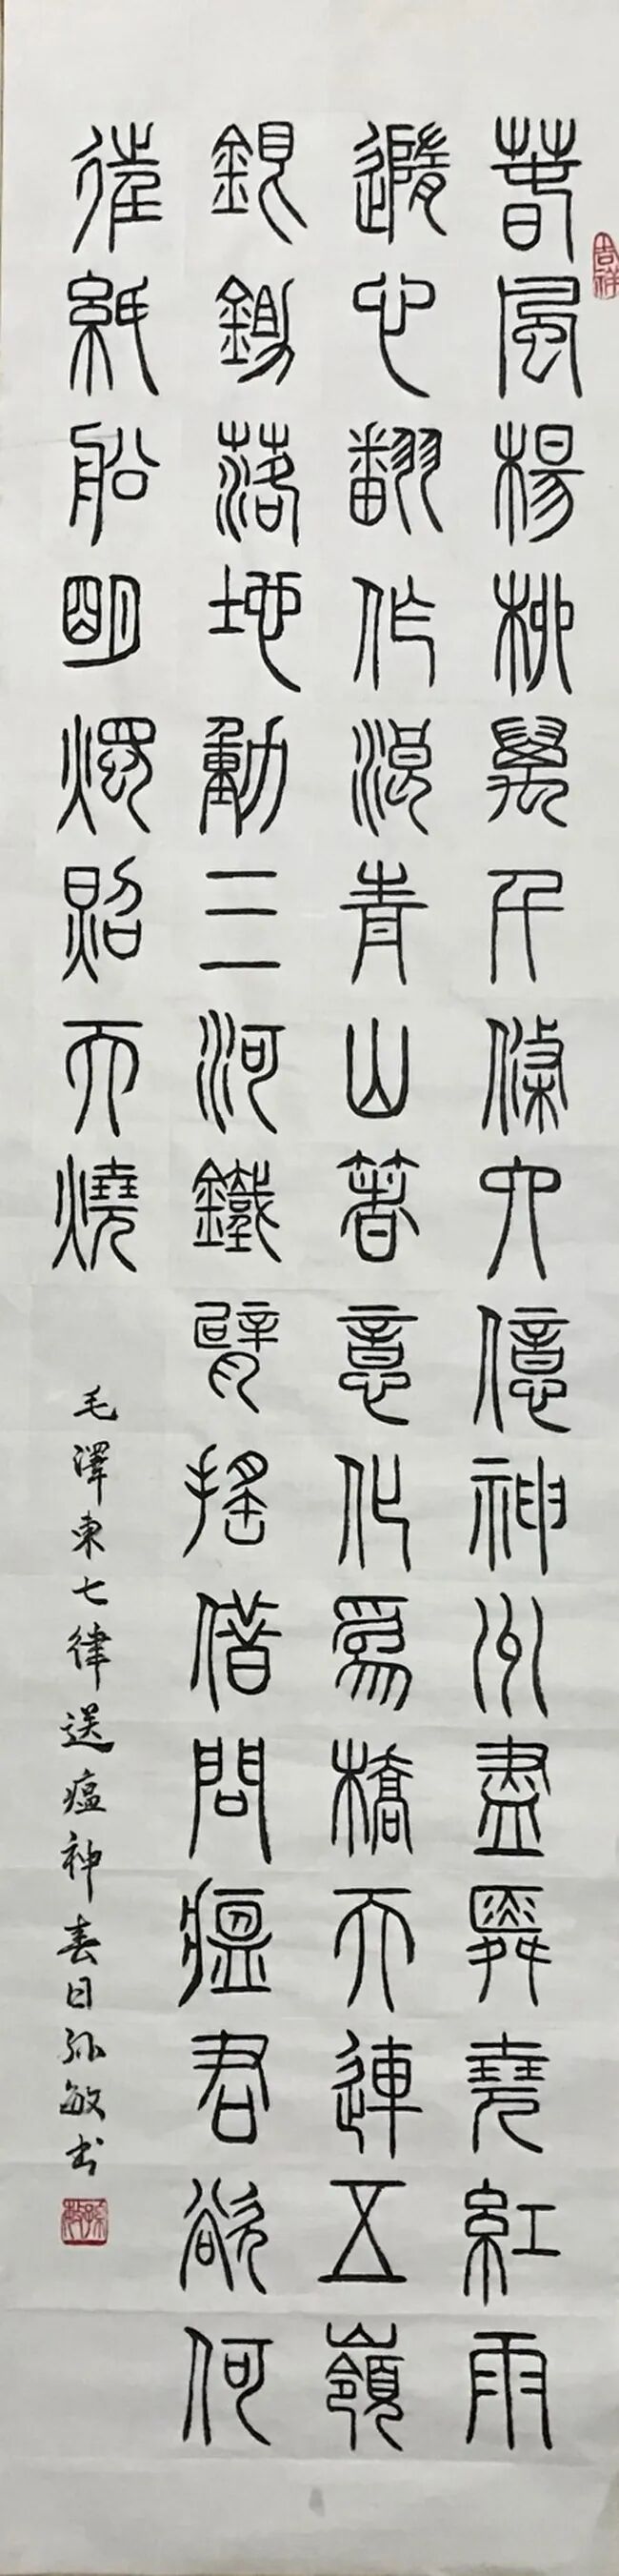 吉祥
春風楊柳萬千條六億神州盡舜堯紅雨
隨心翻作浪青山著意化爲橋天連五嶺
銀鋤落地動三河鐵臂搖借問瘟君欲何
往紙船明燭照天燒
毛澤東七律送瘟神春日孙敏书
孫敏